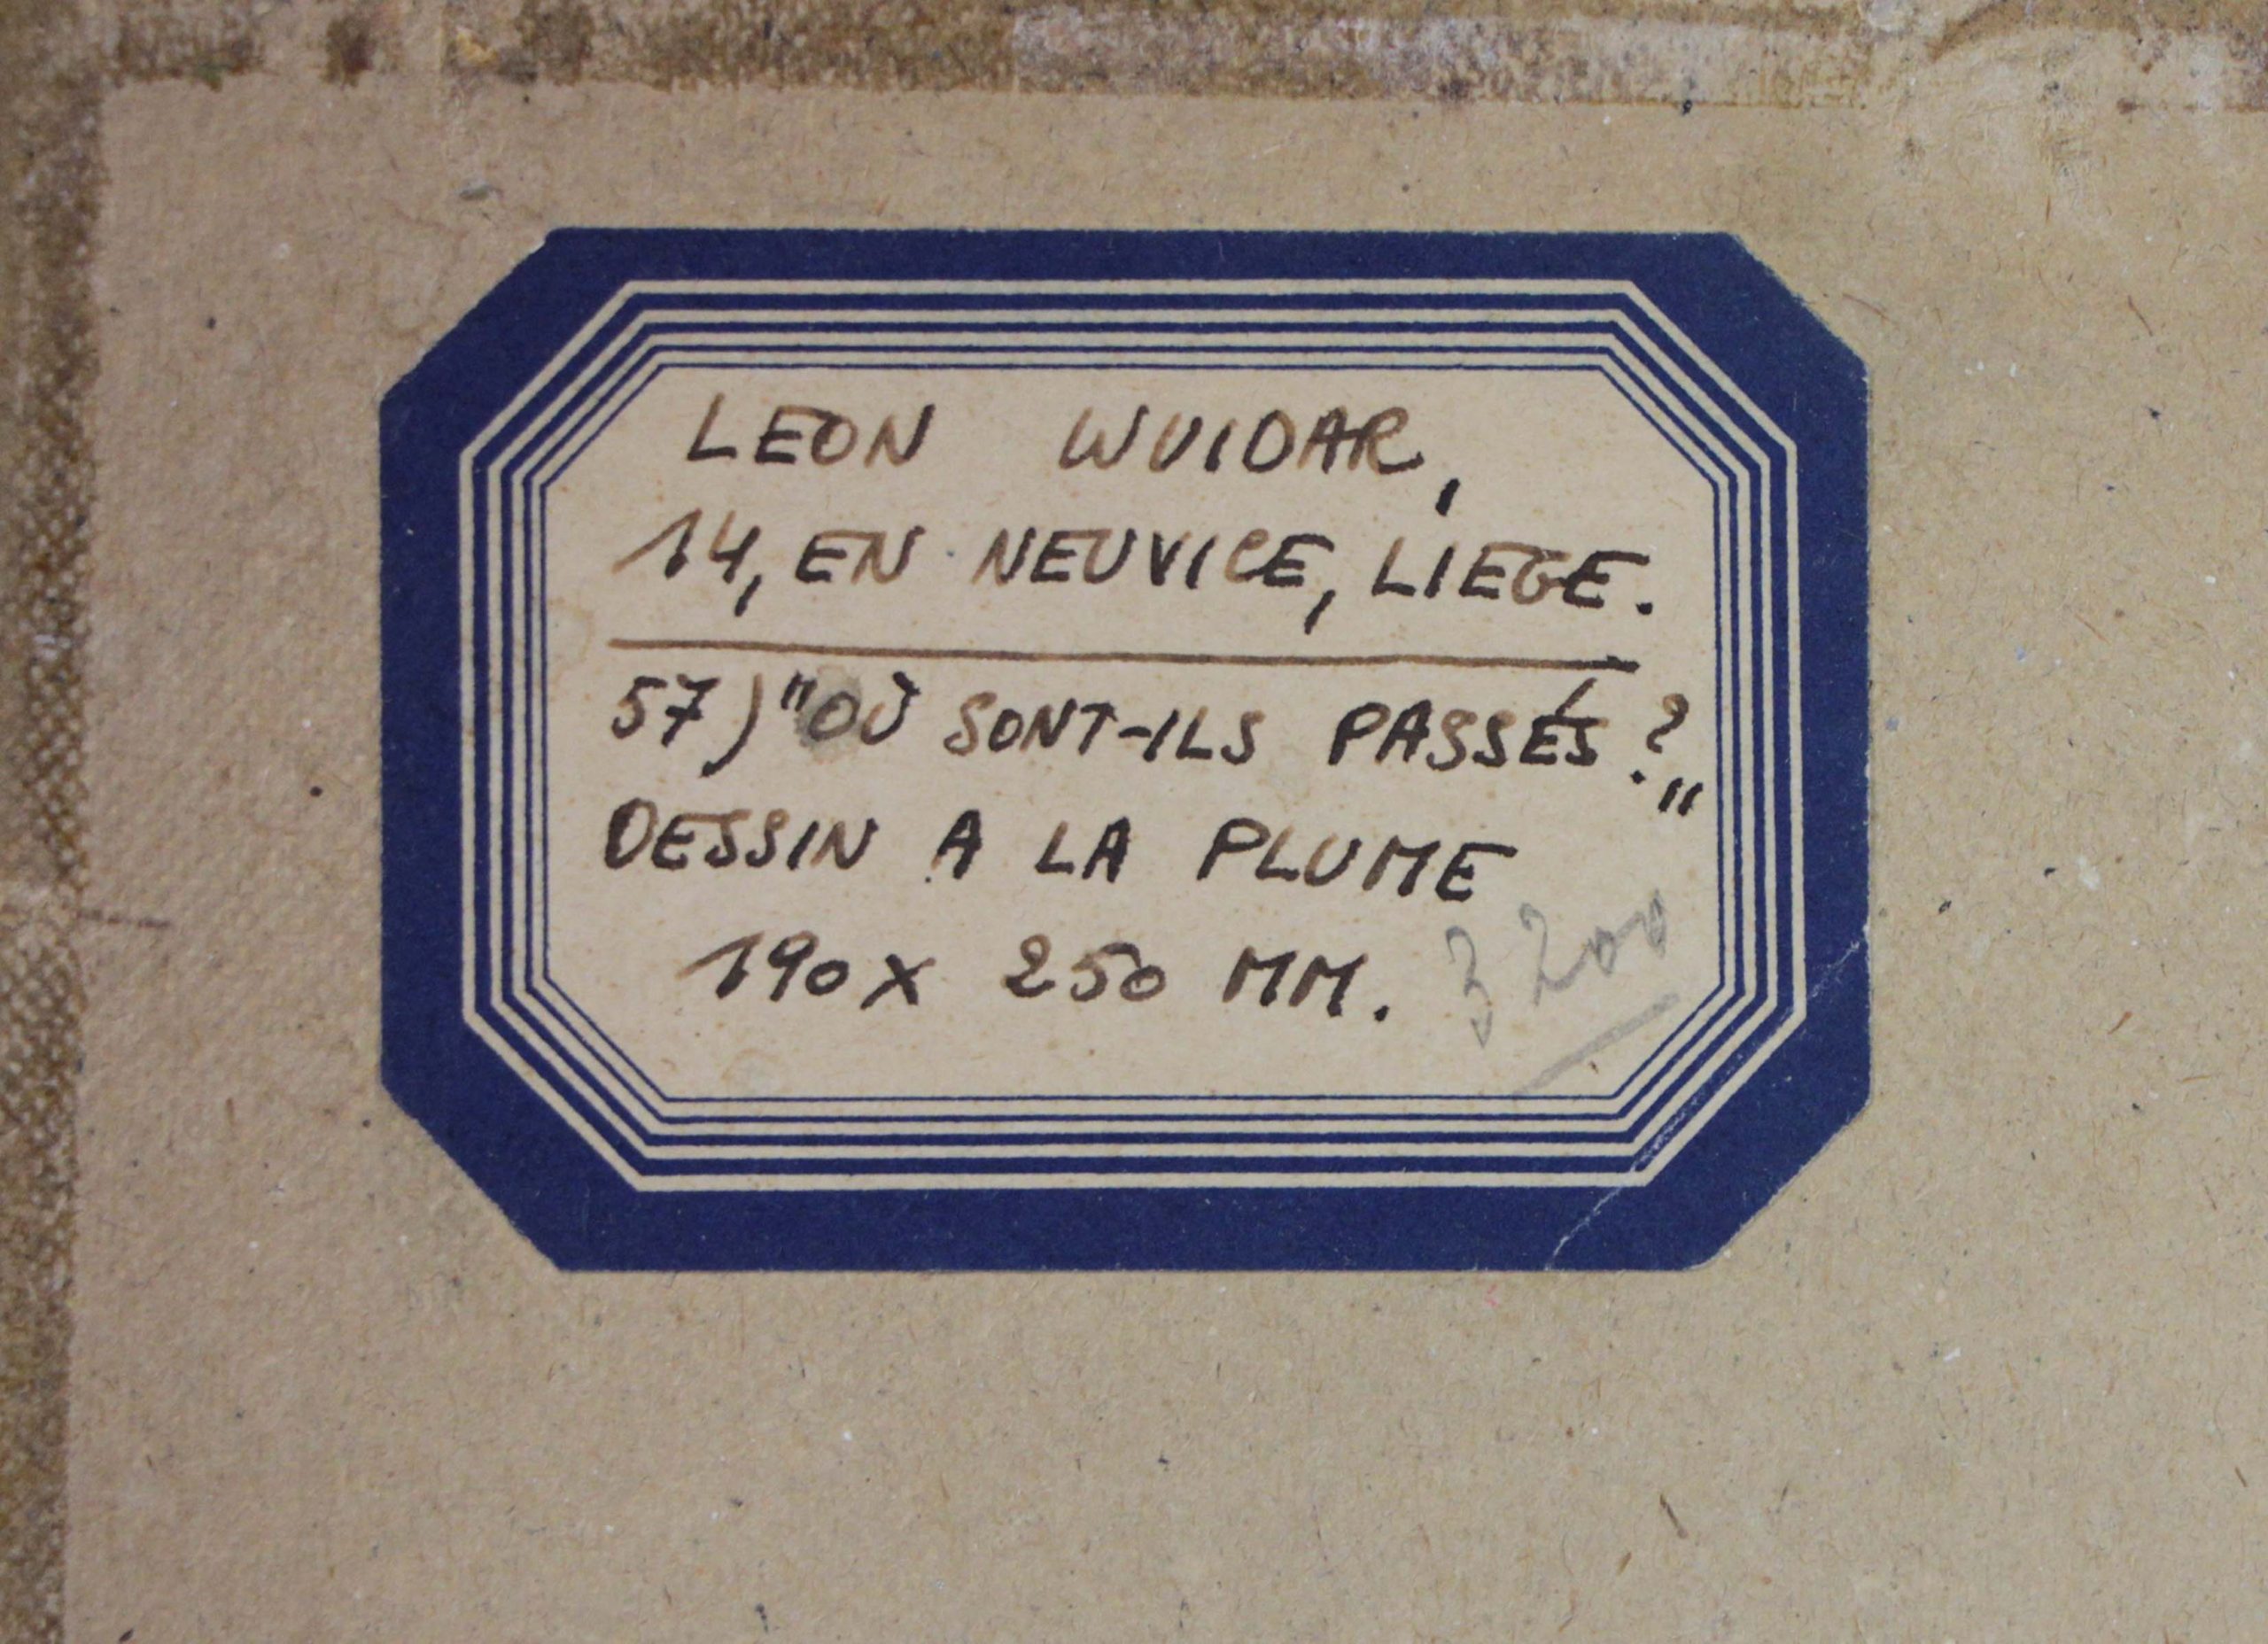 LEON WUIDAR,
14, EN NEUVICE, LIEGE.
57) "OÙ SONT-ILS PASSÉS ?"
DESSIN A LA PLUME
190 X 250 MM.
3200